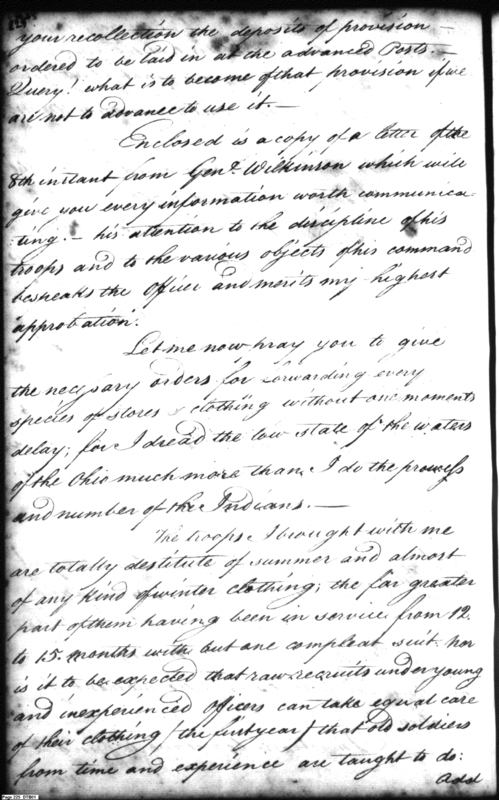 your recollection the deposits of provision —
ordered to be laid in at the advanced Posts. —
Query! what is to become of that provision if we
are not to advance to use it. —
Enclosed is a copy of a letter of the
8th instant from Genl. Wilkinson which will
give you every information worth communica-
-ting. — his attention to the discipline of his
troops and to the various objects of his command
bespeaks the Officer and merits my highest
approbation.
Let me now pray you to give
the necessary orders for forwarding every
species of stores & clothing without one moments
delay; for I dread the low state of the waters
of the Ohio much more than I do the prowess
and number of the Indians. —
The troops I brought with me
are totally destitute of summer and almost
of any kind of winter clothing; the far greater
part of them having been in service from 12.
to 15. months with but one compleat suit. nor
is it to be expected that raw recruits under young
and inexperienced officers can take equal care
of their clothing (the first year) that old soldiers
from time and experience are taught to do:
Add